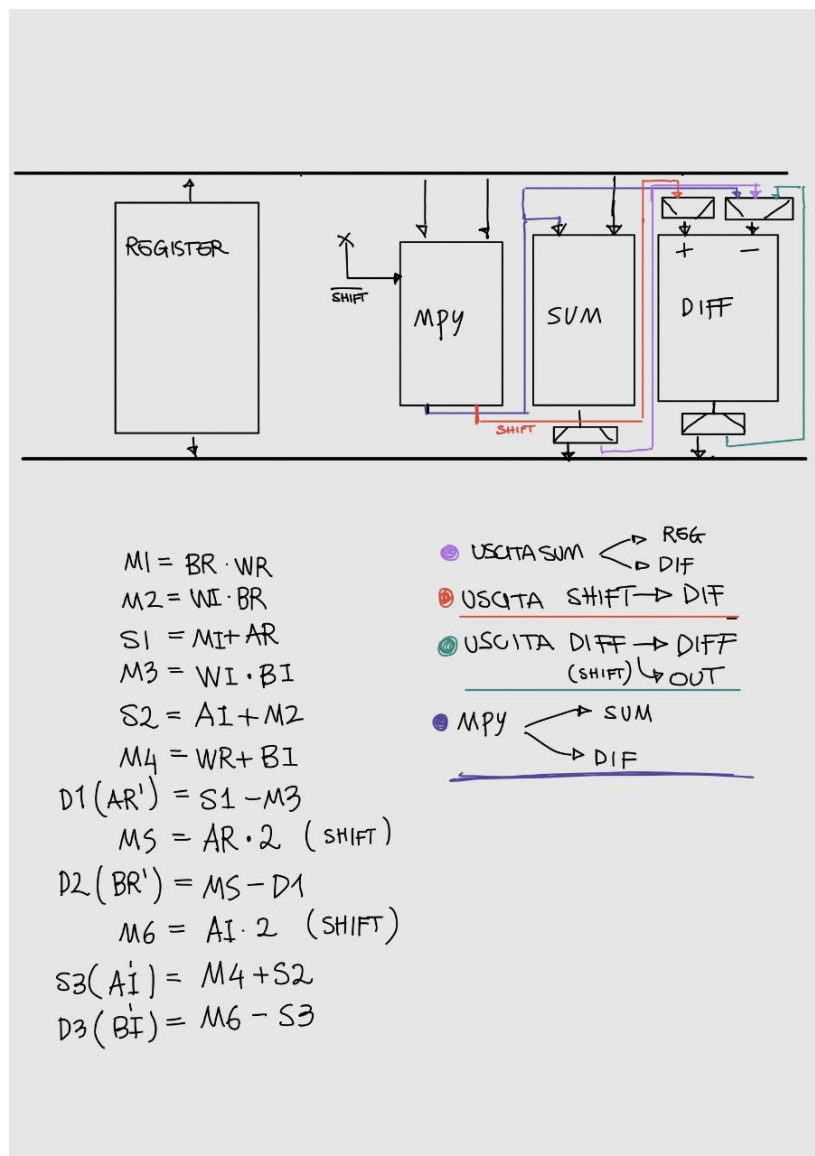 REGISTER
X
SHIFT
MPY
SUM
+ -
DIFF
SHIFT
M1 = BR · WR
M2 = WI · BR
S1 = M1 + AR
M3 = WI · BI
S2 = AI + M2
M4 = WR + BI
D1 (AR') = S1 - M3
M5 = AR · 2 (SHIFT)
D2 (BR') = M5 - D1
M6 = AI · 2 (SHIFT)
S3 (AI') = M4 + S2
D3 (BI') = M6 - S3
USCITA SUM → REG
→ DIF
USCITA SHIFT → DIF
USCITA DIFF → DIFF
(SHIFT) → OUT
MPY → SUM
→ DIF